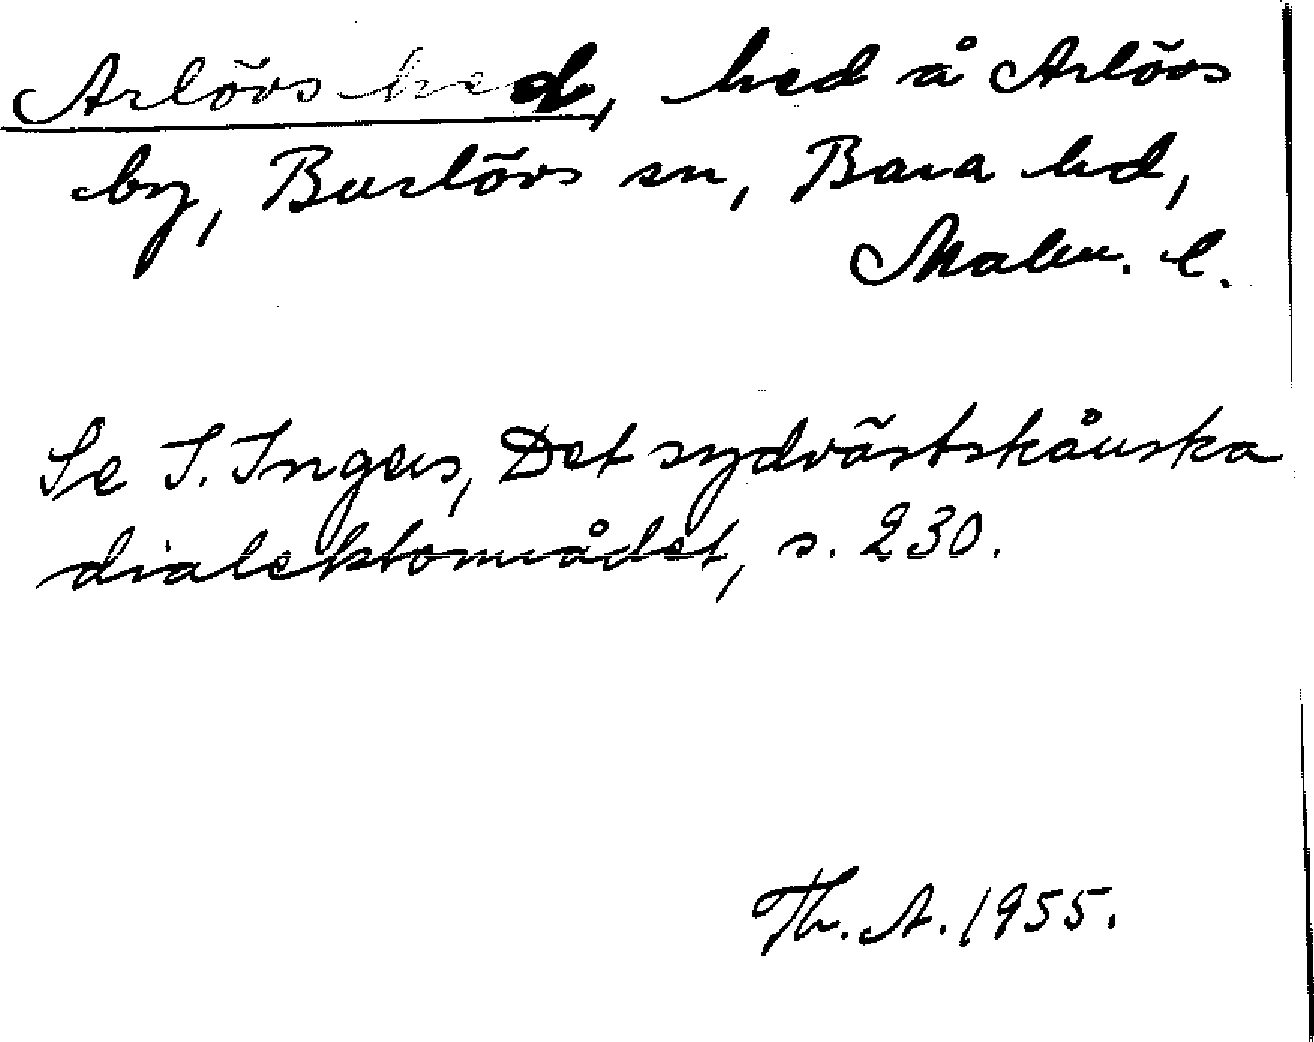 Arlövs hed, hed å Arlövs
by, Burlövs sn, Bara hd,
Malm. l.
Se I. Ingers, Det sydvästskånska
dialektområdet, s. 230.
Th. A. 1955.